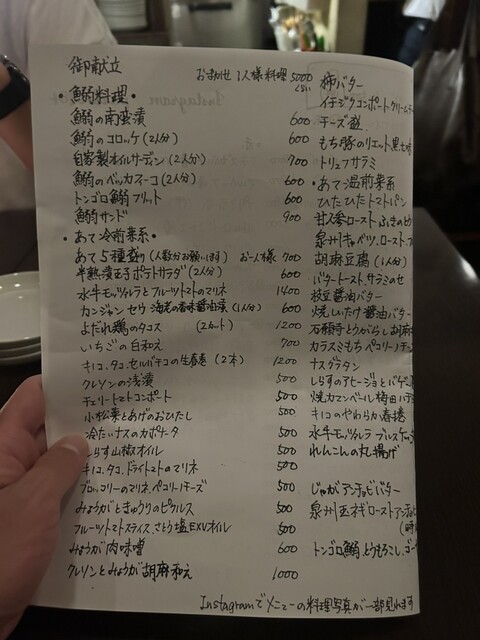 御献立
おまかせ 1人様料理 5000
くらい
・鰯料理・
鰯の南蛮漬 600
鰯のコロッケ(2人分) 600
自家製オイルサーディン(2人分) 700
鰯のベッカフーコ(2人分) 600
トンゴロ鰯フリット 600
鰯サンド 900
・あて冷前菜系・
あて5種盛り(人数分お願いします) お一人様 700
半熟漬玉子ポテトサラダ(2人分) 600
水牛モッツァレラとフルーツトマトのマリネ 1400
カンジャンセウ 海老の香味醤油漬(1人分) 600
よだれ鶏のタコス (2カット) 1200
いちごの白和え 700
キノコ、タコ、セルバチコの生春巻(2本) 1200
クレソンの浅漬 500
チェリートマトコンポート 500
小松菜とあげのおひたし
冷たいナスのカポナータ 500
しらす山椒オイル 500
キノコ、タコ、ドライトマトのマリネ 500
ブロッコリーのマリネ、ペコリーノチーズ 500
みょうがときゅうりのピクルス 500
フルーツトマトスライス、さとう塩EXVオイル 500
みょうが肉味噌 600
クレソンとみょうが胡麻和え 1000
柿バター
イチジクコンポートクリームチー
チーズ盛
もち豚のリエット黒七味
トリュフサラミ
・あて温前菜系
ひたひたトマトパン
甘え参ロースト ふきのと
泉州キャベツ、ロースト、ア
胡麻豆腐(1人分)
バタートースト、サラミのせ
枝豆醤油バター
焼しいたけ醤油バター
万願寺とうがらし胡麻
カラスミもち ペコリーノチー
ナスグラタン
しらすのアヒージョとバゲ
焼カマンベール 梅田ハチ
キノコのやわらか春捲
水牛モッツァレラ ブルスケッ
れんこんの丸揚げ
じゃがアンチョビバター
泉州玉ねぎローストアンチョビ
トンゴロ鰯、とうもろこし、ゴー
Instagramでメニューの料理写真が一部見れます